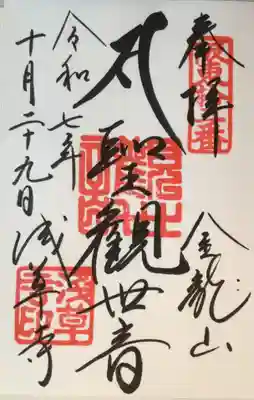 奉拝
金龍山
聖觀世音
令和七年
十月二十九日
浅草寺
浅草寺印